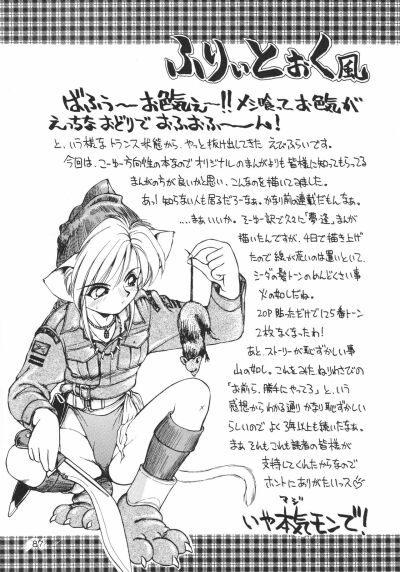 ふりぃとぉく風
ばふぅ〜お色気ぇ〜!!メシ喰ってお色気が
えっちなおどりでおふおふ〜ん!
と、いう様なトランス状態から、やっと抜け出してきた えびふらいです。
今回は、こーゆー方向性の本なのでオリジナルのまんがよりも皆様に知ってもらってる
まんがの方が良いかと思い、こんなのを描いてみました。
あ!知らない人も居るだろーなぁ。かなり前の連載だもんなぁ。
....まぁいいか。てーゆー訳で久々に「夢逢」まんが
描いたんですが、4日で描き上げ
たので絵が荒いのは置いといて、
シーダの髪トーンのめんどくさい事
火の如しだね。
20P貼っただけで125番トーン
2枚なくなったわ!
あと、ストーリーが恥ずかしい事
山の如し。こんをみたねりわさびの
「お前ら、勝手にやってろ」と、いう
感想からわかる通りかなり恥ずかしい
らしいのでよく3年以上も続いたなぁ。
まぁそれもこれも読者の皆様が
支持してくれたからなので
ホントにありがたいっス
マジ
いや本気モンで!
87